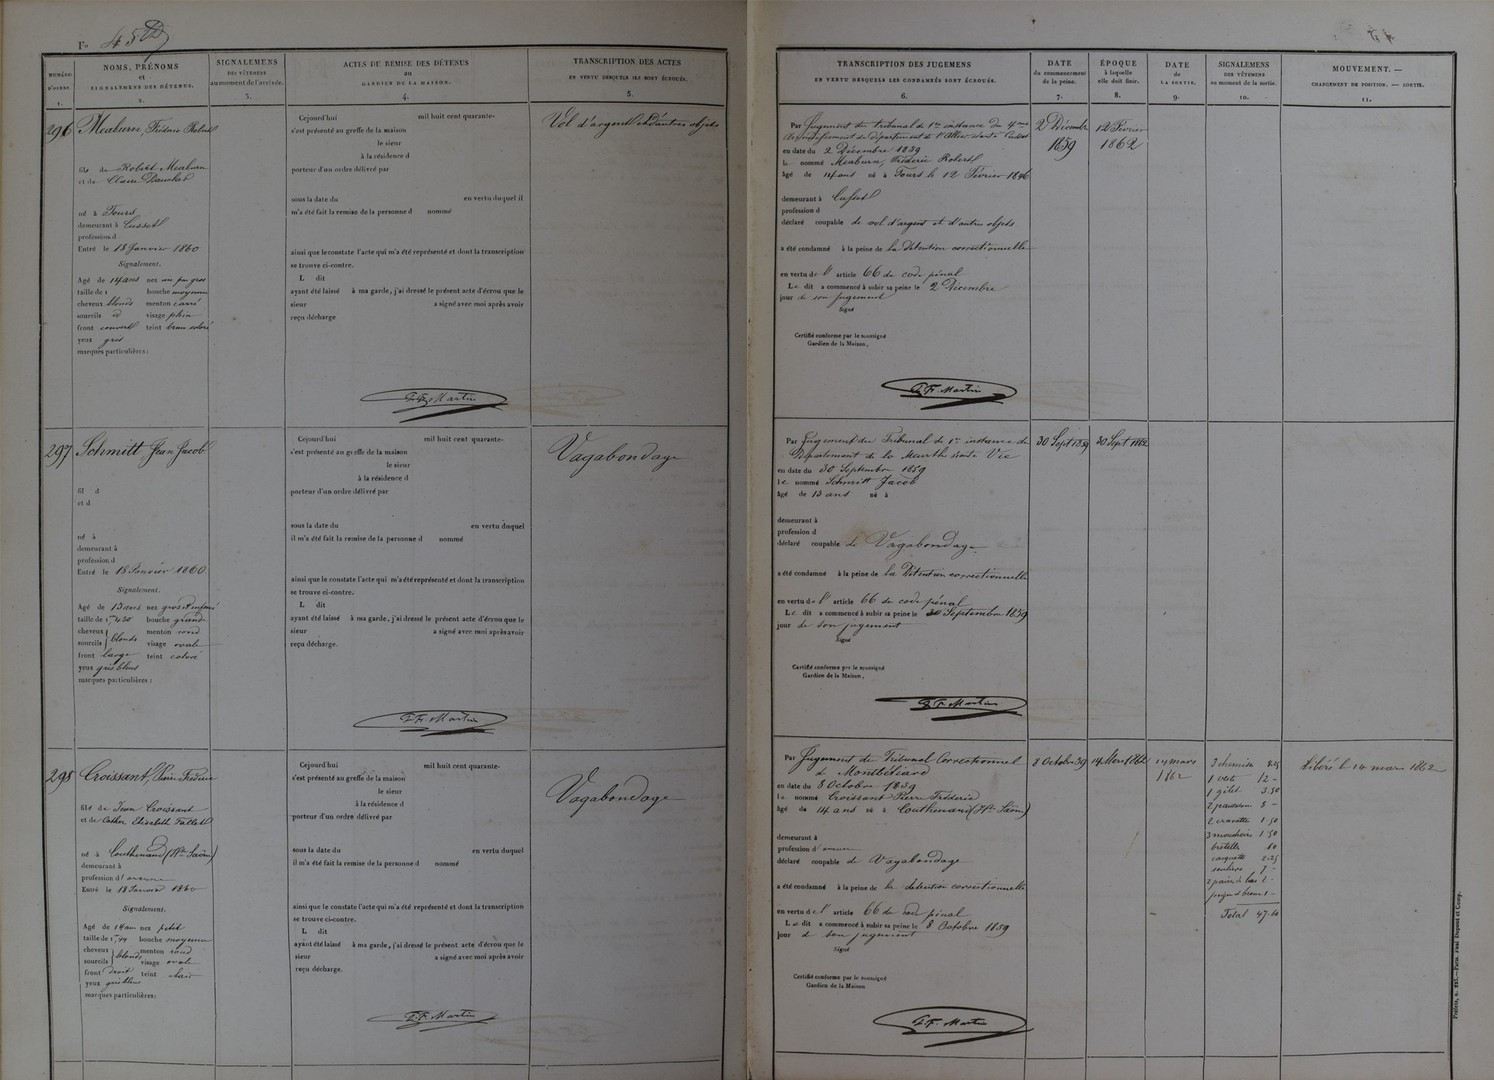 F° 45
NUMÉRO D'ORDRE. 1.
NOMS, PRÉNOMS et SIGNALEMENS DES DÉTENUS. 2.
SIGNALEMENS DES VÊTEMENS au moment de l'arrivée. 3.
ACTES DE REMISE DES DÉTENUS au GARDIEN DE LA MAISON. 4.
TRANSCRIPTION DES ACTES EN VERTU DESQUELS ILS SONT ÉCROUÉS. 5.
TRANSCRIPTION DES JUGEMENS EN VERTU DESQUELS LES CONDAMNÉS SONT ÉCROUÉS. 6.
DATE du commencement de la peine. 7.
ÉPOQUE à laquelle elle doit finir. 8.
DATE de LA SORTIE. 9.
SIGNALEMENS DES VÊTEMENS au moment de la sortie. 10.
MOUVEMENT. — CHANGEMENT DE POSITION. — SORTIE. 11.
296 Meaburn, Fréderic Robert
fils de Robert Meaburn
et de Claire
né à Tours
demeurant à Cusset
profession d
Entré le 18 Janvier 1860
Signalement.
Agé de 14 ans nez un peu gros
taille de 1 bouche moyenne
cheveux blonds menton carré
sourcils d visage plein
front couvert teint brun coloré
yeux gris
marques particulières :
Cejourd'hui mil huit cent quarante-
s'est présenté au greffe de la maison
le sieur
à la résidence d
porteur d'un ordre délivré par
sous la date du en vertu duquel il
m'a été fait la remise de la personne d nommé
ainsi que le constate l'acte qui m'a été représenté et dont la transcription
se trouve ci-contre.
L dit
ayant été laissé à ma garde, j'ai dressé le présent acte d'écrou que le
sieur a signé avec moi après avoir
reçu décharge
F. F. Martin
Vol d'argent et d'autres objets
Par Jugement du tribunal de 1re instance du 4me
arrondissement du département de l'Allier séant à Cusset
en date du 2 Décembre 1859
le nommé Meaburn, Fréderic Robert
âgé de 14 ans né à Tours le 12 Février 1846
demeurant à Cusset
profession d
déclaré coupable de vol d'argent et d'autres objets
a été condamné à la peine de la Détention correctionnelle
en vertu de l' article 66 du code pénal
Le dit a commencé à subir sa peine le 2 Décembre
jour de son jugement
Signé
Certifié conforme par le soussigné
Gardien de la Maison,
F. F. Martin
2 Décembre 1859
12 Février 1862
297 Schmitt Jean Jacob
fil d
et d
né à
demeurant à
profession d
Entré le 18 Janvier 1860
Signalement.
Agé de 13 ans nez gros et
taille de 1,430 bouche grande
cheveux blonds menton rond
sourcils visage ovale
front large teint coloré
yeux gris bleus
marques particulières :
Cejourd'hui mil huit cent quarante-
s'est présenté au greffe de la maison
le sieur
à la résidence d
porteur d'un ordre délivré par
sous la date du en vertu duquel
il m'a été fait la remise de la personne d nommé
ainsi que le constate l'acte qui m'a été représenté et dont la transcription
se trouve ci-contre.
L dit
ayant été laissé à ma garde, j'ai dressé le présent acte d'écrou que le
sieur a signé avec moi après avoir
reçu décharge.
F. F. Martin
Vagabondage
Par Jugement du Tribunal de 1re instance du
Département de la Meurthe séant à Vic
en date du 30 Septembre 1859
le nommé Schmitt Jacob
âgé de 13 ans né à
demeurant à
profession d
déclaré coupable de Vagabondage
a été condamné à la peine de la Détention correctionnelle
en vertu de l' article 66 du code pénal
Le dit a commencé à subir sa peine le 30 Septembre 1859
jour de son jugement
Signé
Certifié conforme par le soussigné
Gardien de la Maison,
F. F. Martin
30 Sept 1859
30 Sept 1862
298 Croissant, Pierre Fréderic
fils de Jean Croissant
et de Cather. Elisabeth Fallot
né à Couthenans (Hte Saône)
demeurant à
profession d'
Entré le 18 Janvier 1860
Signalement.
Agé de 14 ans nez petit
taille de 1,44 bouche moyenne
cheveux blonds menton rond
sourcils visage ovale
front droit teint clair
yeux gris bleus
marques particulières :
Cejourd'hui mil huit cent quarante-
s'est présenté au greffe de la maison
le sieur
à la résidence d
porteur d'un ordre délivré par
sous la date du en vertu duquel
il m'a été fait la remise de la personne d nommé
ainsi que le constate l'acte qui m'a été représenté et dont la transcription
se trouve ci-contre.
L dit
ayant été laissé à ma garde, j'ai dressé le présent acte d'écrou que le
sieur a signé avec moi après avoir
reçu décharge.
F. F. Martin
Vagabondage
Par Jugement du Tribunal Correctionnel
de Montbéliard
en date du 8 Octobre 1859
le nommé Croissant Pierre Fréderic
âgé de 14 ans né à Couthenans (Hte Saône)
demeurant à
profession d'
déclaré coupable de Vagabondage
a été condamné à la peine de la détention correctionnelle
en vertu de l' article 66 du code pénal
Le dit a commencé à subir sa peine le 8 Octobre 1859
jour de son jugement
Signé
Certifié conforme par le soussigné
Gardien de la Maison
F. F. Martin
8 Octobre 59
14 Mars 1862
14 mars 1862
3 chemises
1 veste 12 -
1 gilet 3.50
2 pantalons
2 cravatte 1 50
3 mouchoirs 1 50
bretelles 60
casquette 2.25
souliers 7 -
2 paires de bas 2 -
1 -
Total 47.60
Libéré le 14 mars 1862